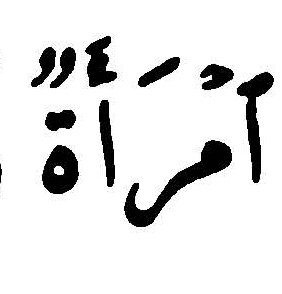 اَمْرَأَةٌ